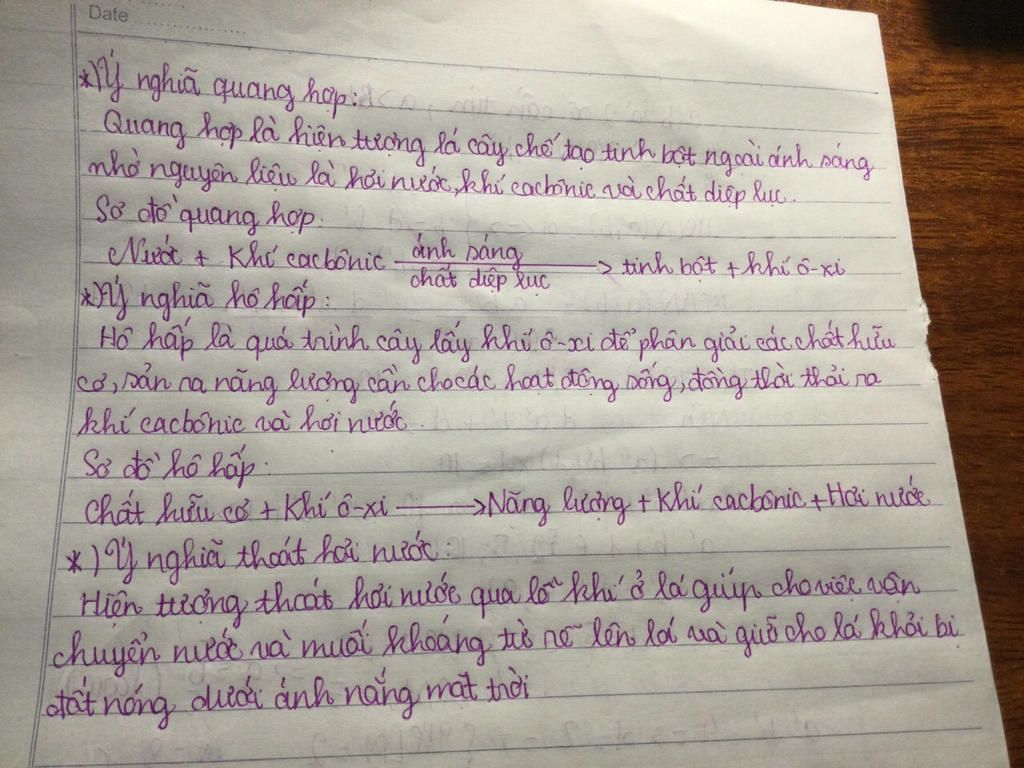 Date
*) Ý nghĩa quang hợp:
Quang hợp là hiện tượng lá cây chế tạo tinh bột ngoài ánh sáng
nhờ nguyên liệu là hơi nước, khí cacbônic và chất diệp lục.
Sơ đồ quang hợp.
Nước + Khí cacbônic ánh sáng → tinh bột + khí ô-xi
chất diệp lục
*) Ý nghĩa hô hấp:
Hô hấp là quá trình cây lấy khí ô-xi để phân giải các chất hữu
cơ, sản ra năng lượng cần cho các hoạt động sống, đồng thời thải ra
khí cacbônic và hơi nước.
Sơ đồ hô hấp:
Chất hữu cơ + Khí ô-xi → Năng lượng + Khí cacbônic + Hơi nước
*) Ý nghĩa thoát hơi nước:
Hiện tượng thoát hơi nước qua lỗ khí ở lá giúp cho việc vận
chuyển nước và muối khoáng từ rễ lên lá và giữ cho lá khỏi bị
đốt nóng dưới ánh nắng mặt trời